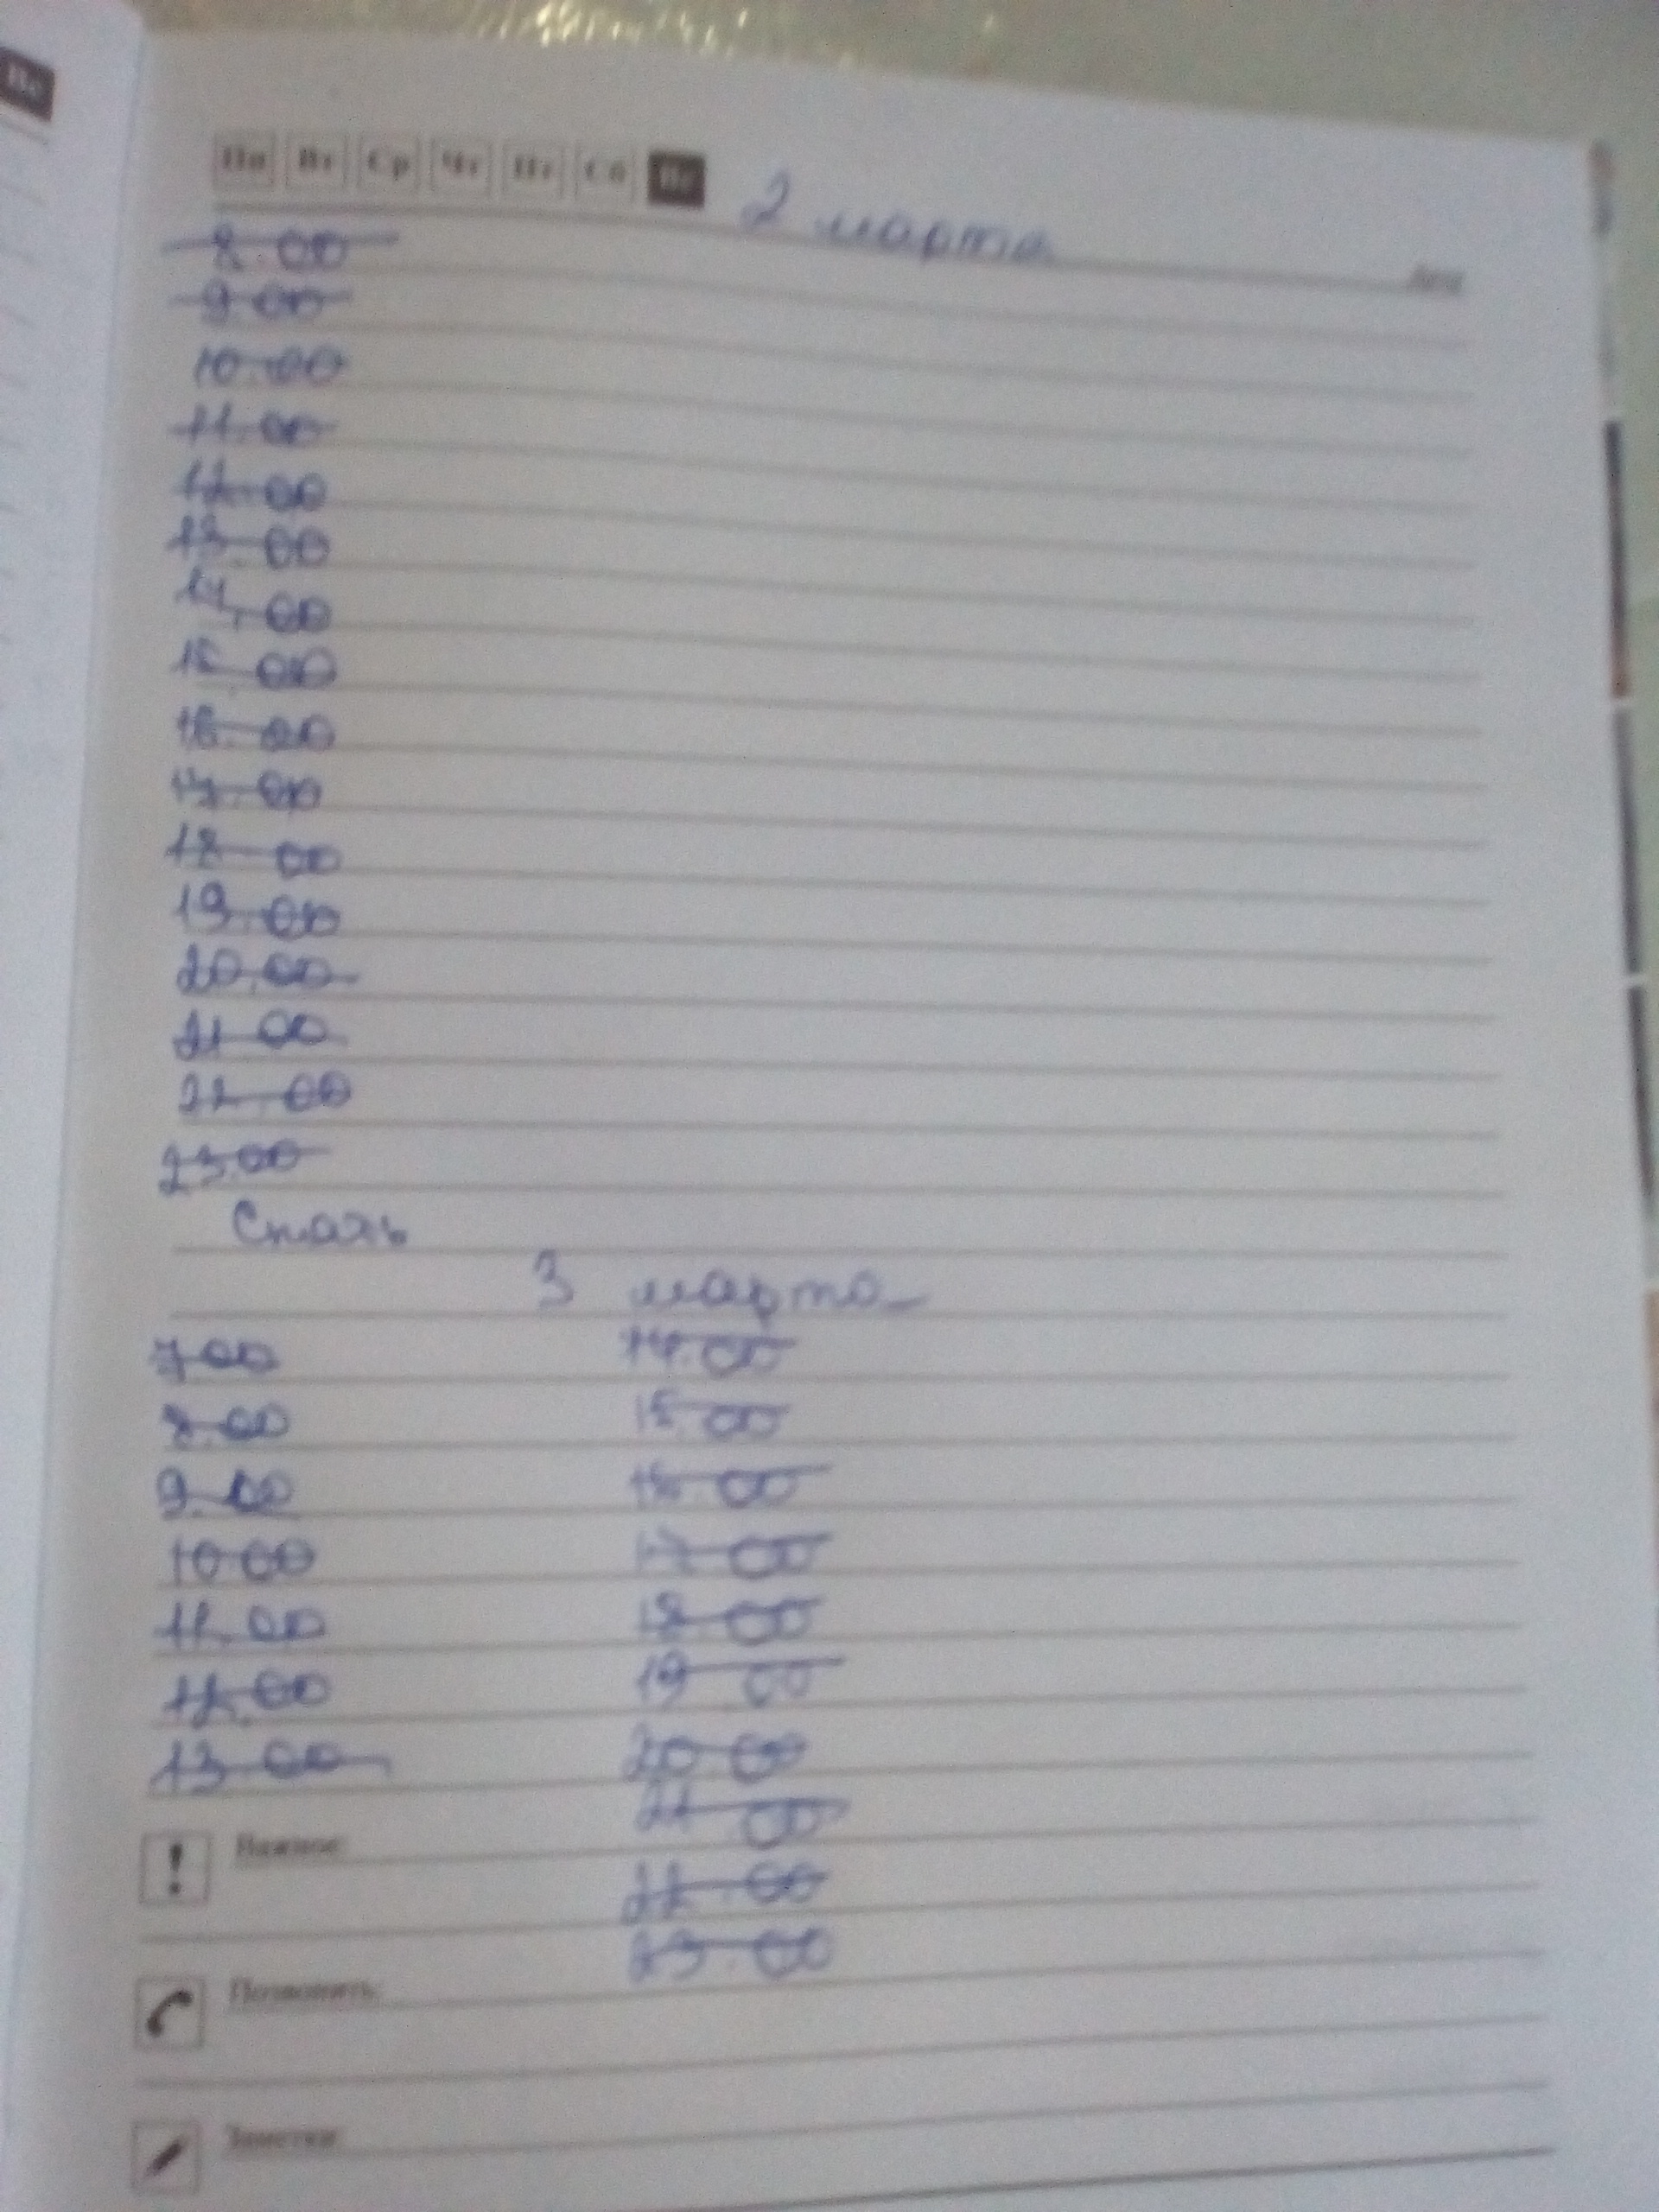 Пн Вт Ср Чт Пт Сб Вс
2 марта
8.00
9.00
10.00
11.00
12.00
13.00
14.00
15 00
16.00
17.00
18 00
19.00
20.00
21 00
22.00
23.00
Спать
3 марта
7 00 14.00
8.00 15.00
9.00 16.00
10 00 17 00
11.00 18 00
12.00 19 00
13.00 20 00
21 00
Важное:
22.00
23.00
Позвонить:
Заметки: